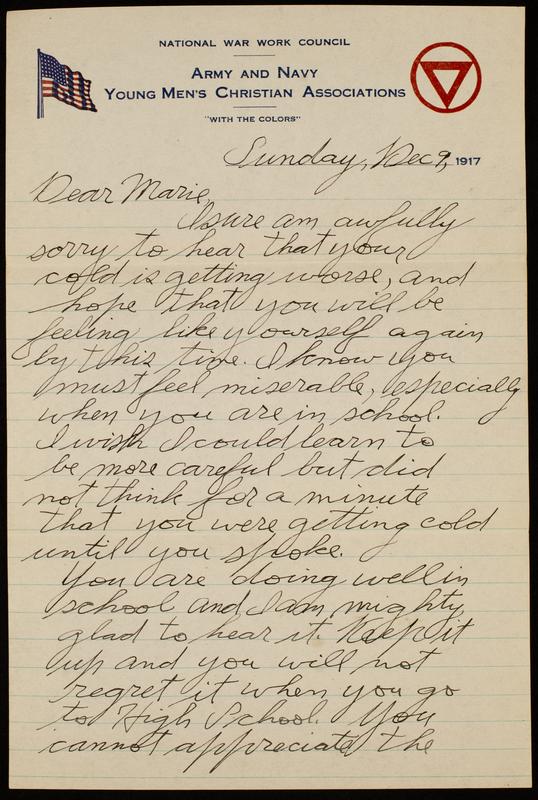 NATIONAL WAR WORK COUNCIL
ARMY AND NAVY
YOUNG MEN'S CHRISTIAN ASSOCIATIONS
"WITH THE COLORS"
Sunday, Dec 9, 1917
Dear Marie,
I sure am awfully
sorry to hear that your
cold is getting worse, and
hope that you will be
feeling like yourself again
by this time. I know you
must feel miserable, especially
when you are in school.
I wish I could learn to
be more careful but did
not think for a minute
that you were getting cold
until you spoke.
You are doing well in
school and I am mighty
glad to hear it. Keep it
up and you will not
regret it when you go
to High School. You
cannot appreciate the